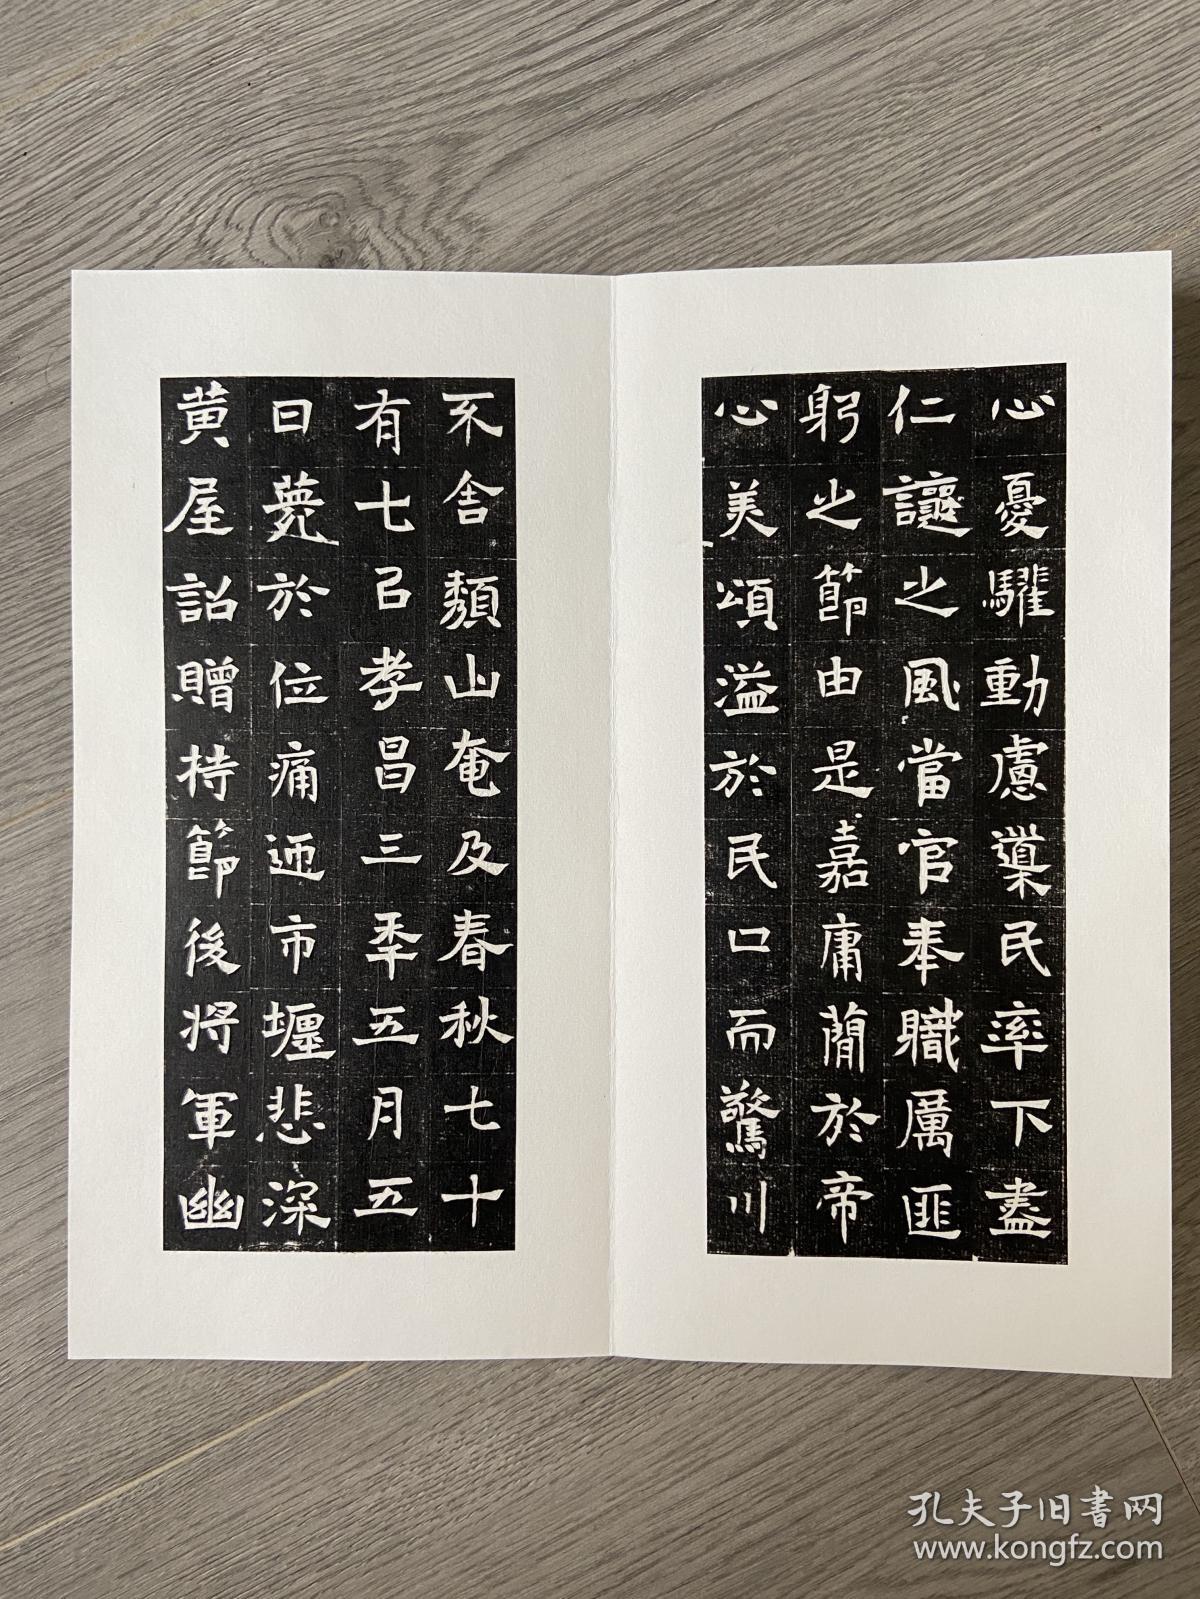 心憂驩動慮導民率下盡
仁讓之風當官奉職厲匪
躬之節由是嘉庸蕳於帝
心美頌溢於民口而驚川
不舍頹山奄及春秋七十
有七以孝昌三年五月五
日薨於位痛迊市㕓悲深
黄屋詔贈持節後將軍幽
孔夫子旧书网
www.kongfz.com